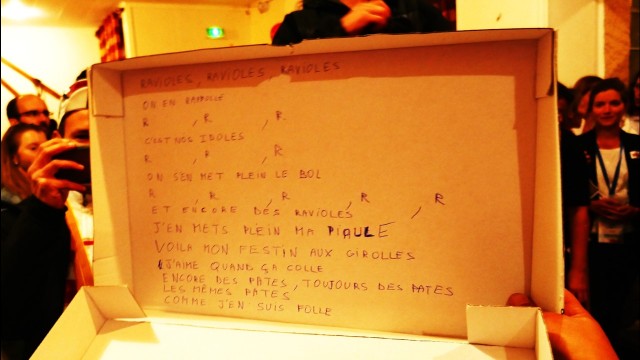 RAVIOLES, RAVIOLES, RAVIOLES
ON EN RAFFOLE
R , R , R
C'EST NOS IDOLES
R , R , R
ON S'EN MET PLEIN LE BOL
R , R , R , R , R
ET ENCORE DES RAVIOLES
J'EN METS PLEIN MA PIAULE
VOILA MON FESTIN AUX GIROLLES
J'AIME QUAND ÇA COLLE
ENCORE DES PATES, TOUJOURS DES PATES
LES MÊMES PATES
COMME J'EN SUIS FOLLE